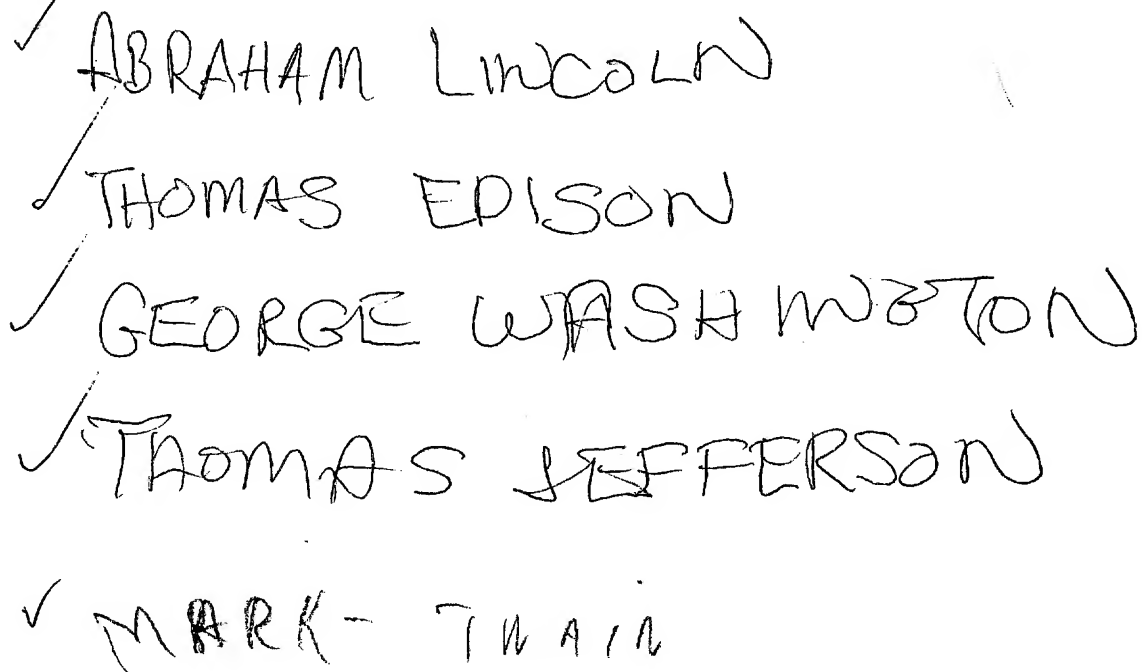 ✓ ABRAHAM LINCOLN
✓ THOMAS EDISON
✓ GEORGE WASHINGTON
✓ THOMAS JEFFERSON
✓ MARK - TWAIN